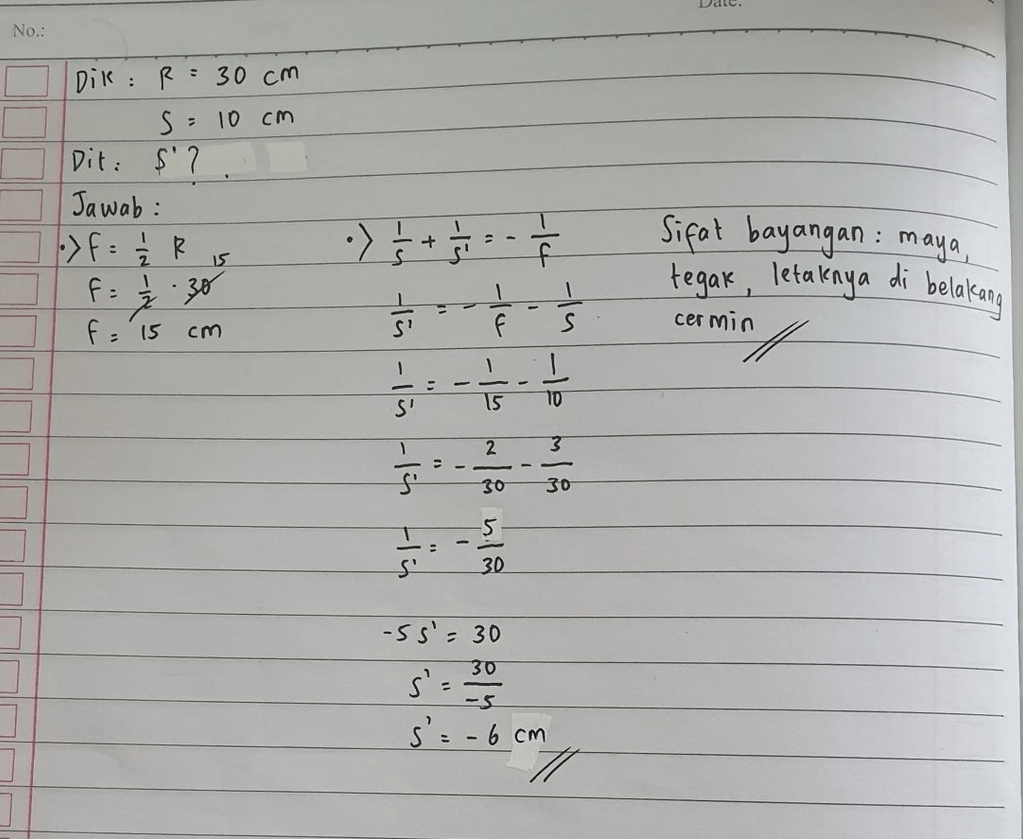 Date:
No.:
Dik : R = 30 cm
S = 10 cm
Dit : S' ?
Jawab :
•> f = 1/2 R
f = 1/2 · 30 15
f = 15 cm
•> 1/S + 1/S' = - 1/f
1/S' = - 1/f - 1/S
1/S' = - 1/15 - 1/10
1/S' = - 2/30 - 3/30
1/S' = - 5/30
-5 S' = 30
S' = 30/-5
S' = - 6 cm //
Sifat bayangan : maya,
tegak, letaknya di belakang
cermin //